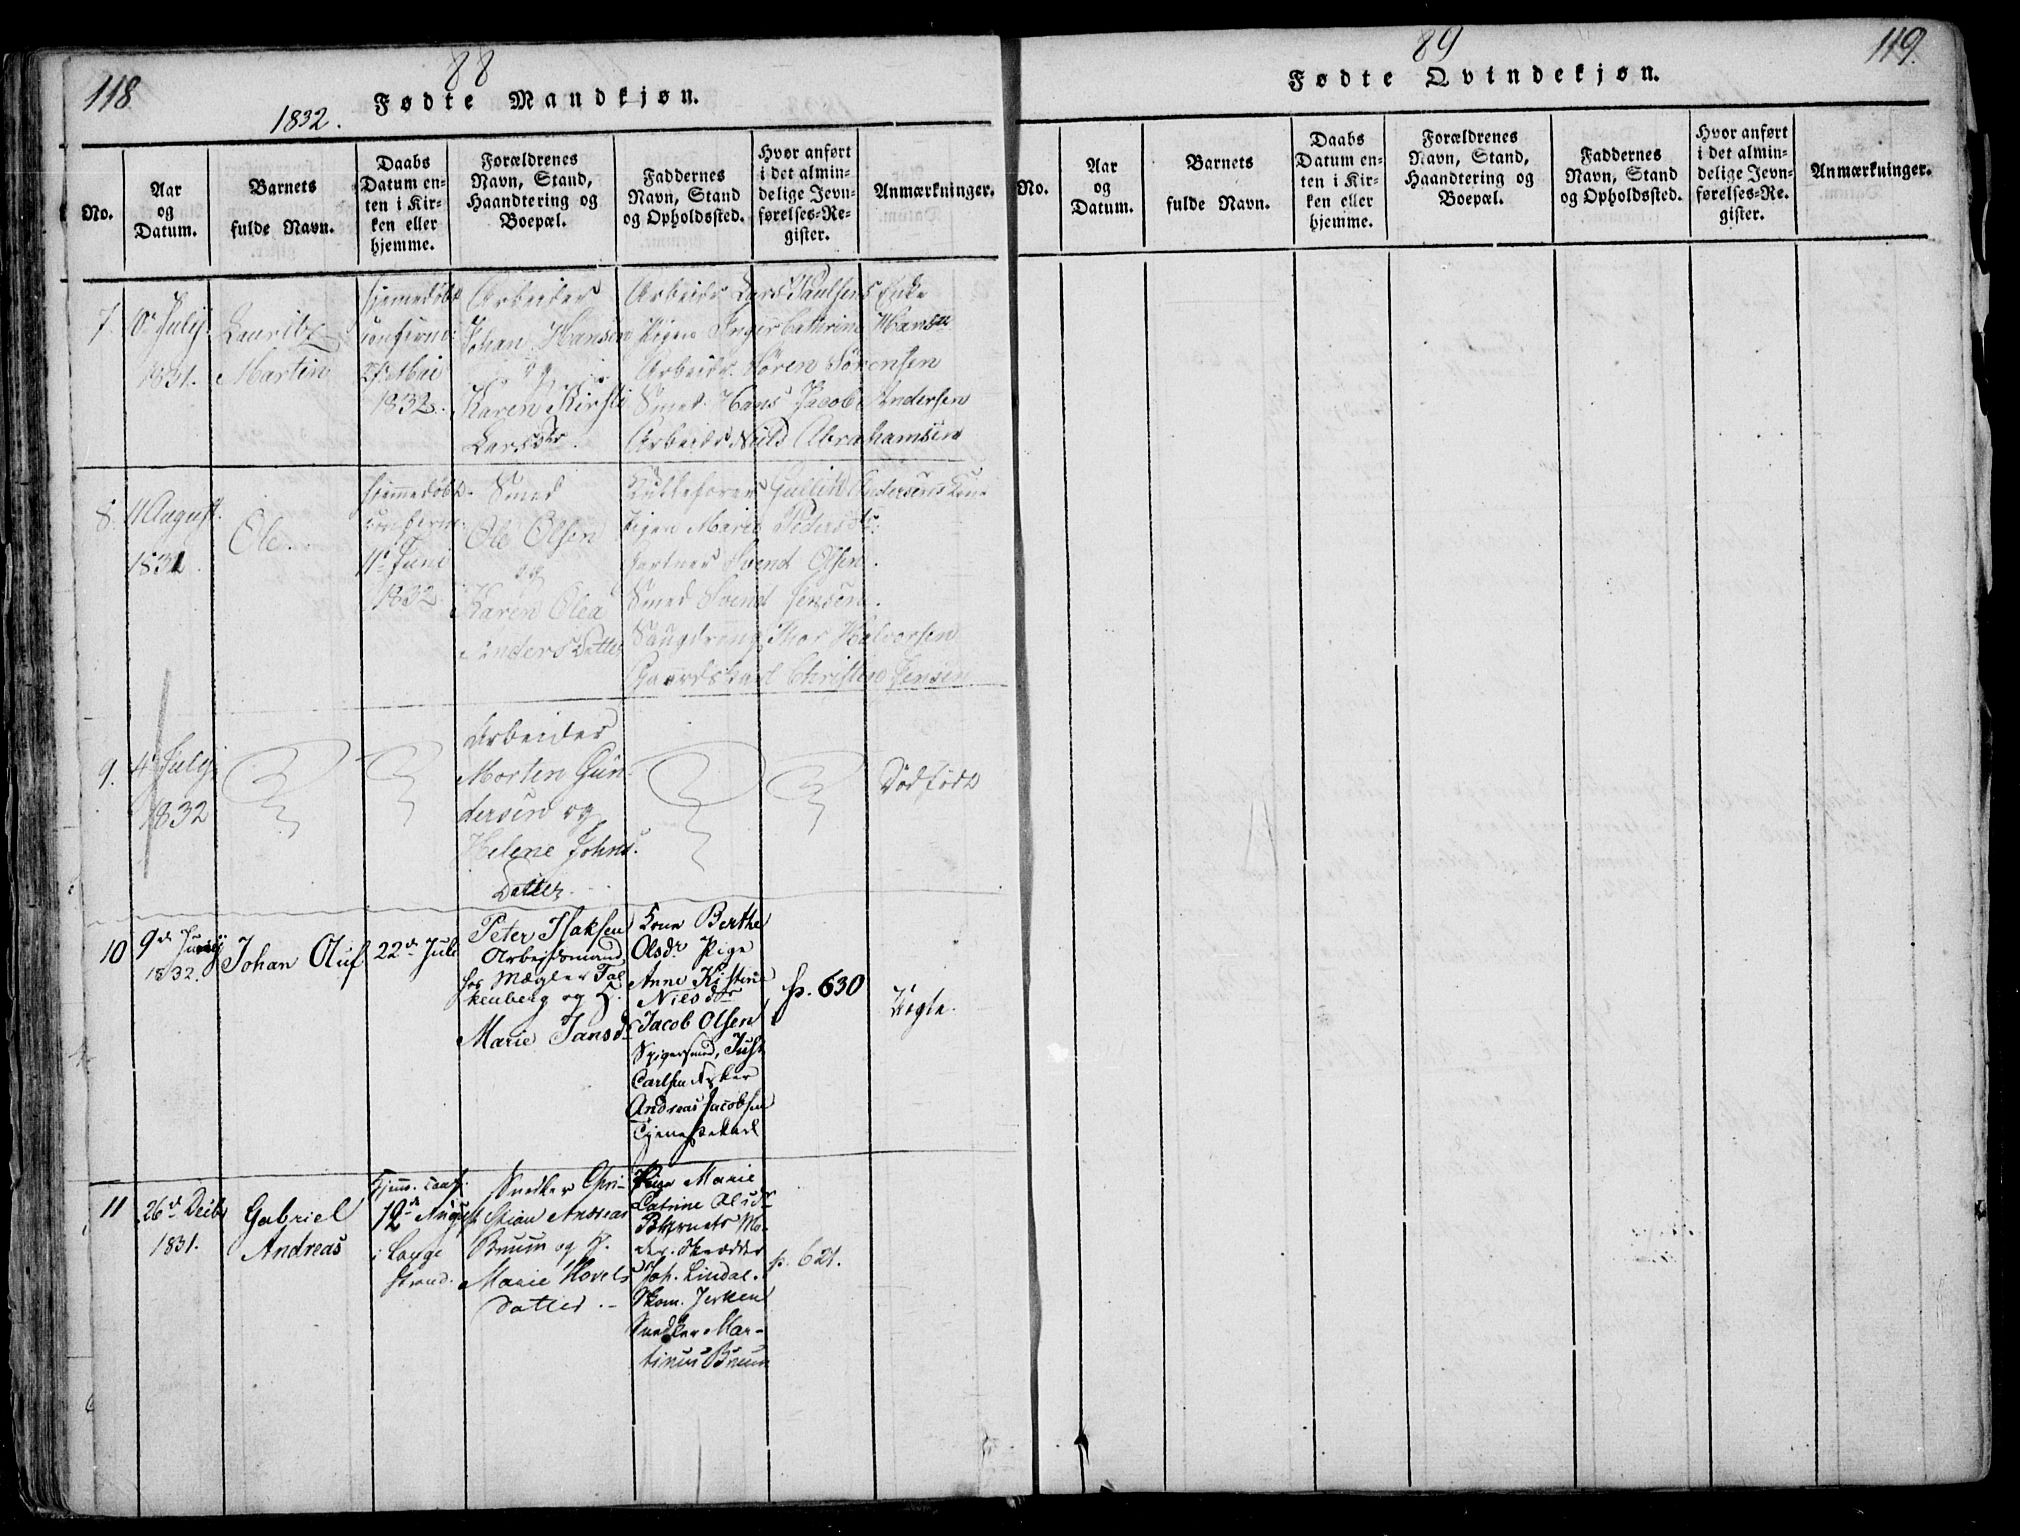 118
88
Fødte Mandkjøn.
1832.
No.
Aar
og
Datum.
Barnets
fulde Navn.
Daabs
Datum en-
ten i Kir-
ken eller
hjemme.
Forældrenes
Navn, Stand,
Haandtering og
Boepæl.
Faddernes
Navn, Stand
og Opholdssted.
Hvor anført
i det almin-
delige Jevn-
førelses-Re-
gister.
Anmærkninger.
7.
July
1831.
Lauritz
Martin
Hjemedøbt
confirm:
Mai
1832.
Arbeider
Johan Hansen
og
Karen Kirsti
Larsdr.
Arbeidr Lars Paulsens Enke
Pigen Inger Cathrine Hansdr
Arbeidr. Søren Sørensen
Smed. Hans Jacob Andersen
Arbeidr Nils Abrahamsen
8.
11 August.
1831.
Ole.
Hjemmedøbt.
confirm.
11te Juni
1832.
Smed
Ole Olsen
og
Karen Olea
Anders Datter
Gullik Andersens Kone
Pigen Marie Peders dr.
Gartner Svend Olsen.
Smed Svend Jensen.
Saugdreng Thor Halvorsen
Gaardskarl Christen Jensen
9.
4 July
1832
Arbeider
Morten Gun-
dersen og
Helene Johns.
Datter.
Dødfødt
10
9de July
1832.
Johan Oluf
22de Juli
Peter Isaksen
Arbejdsmand
hos Mægler Fal
kenberg og H.
Marie Jansd
Kone Berthe
Olsdr Pige
Anne Kistine
Nilsdr
Jacob Olsen
Spigersmed, Just
Carlsen
Andreas Jacobsen
Tjenestekarl
p. 630
Ægte.
11
26de Decbr
1831.
Gabriel
Andreas
Hjem. conf.
12de August
i Lange
strand.
Snedker Chri-
stian Andreas
Bruun og H.
Marie Hovels
datter. -
Pige Marie
Catrine Olsdr
Barnets Mo-
der. Skrædder
Joh. Lindal.
Skom. Jersen
Snedker Mar-
tinus Bruun
p. 621.
89
119.
Fødte Qvindekjøn.
No.
Aar
og
Datum.
Barnets
fulde Navn.
Daabs
Datum en-
ten i Kir-
ken eller
hjemme.
Forældrenes
Navn, Stand,
Haandtering og
Boepæl.
Faddernes
Navn, Stand
og Opholdssted.
Hvor anført
i det almin-
delige Jevn-
førelses-Re-
gister.
Anmærkninger.